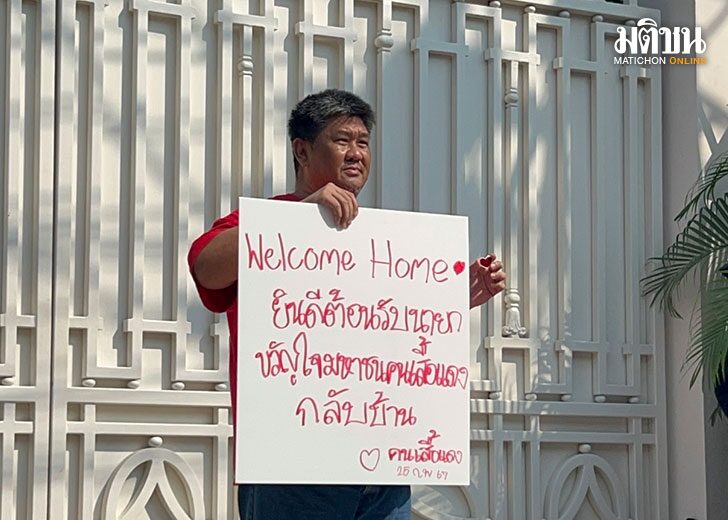 มติชน
MATICHON ONLINE
Welcome Home
ยินดีต้อนรับนายก
ขวัญใจมหาชนคนเสื้อแดง
กลับบ้าน
คนเสื้อแดง
25 ก.พ 67